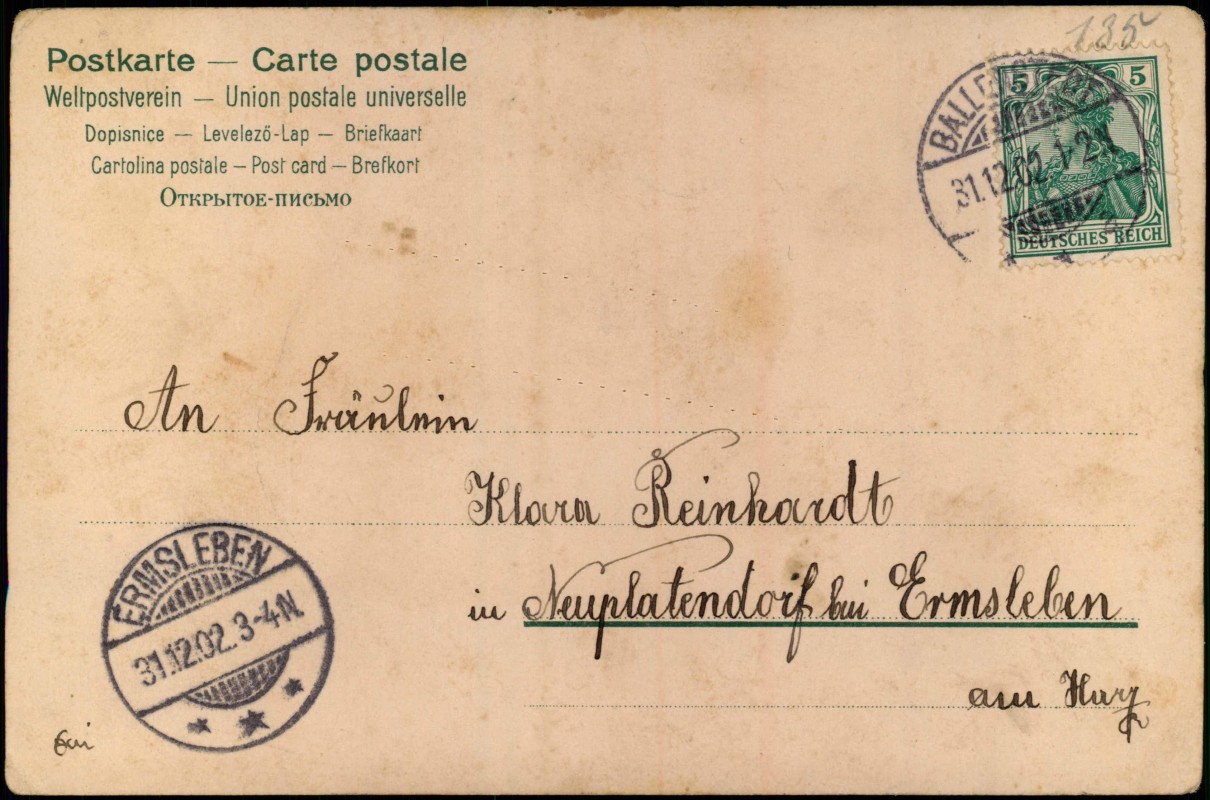 135
Postkarte — Carte postale
Weltpostverein — Union postale universelle
Dopisnice — Levelező-Lap — Briefkaart
Cartolina postale — Post card — Brefkort
Открытое-письмо
5 5
31.12.02 1-2N
DEUTSCHES REICH
An Fräulein
Klara Reinhardt
in Neuplatendorf bei Ermsleben
am Harz
ERMSLEBEN
31.12.02. 3-4N.